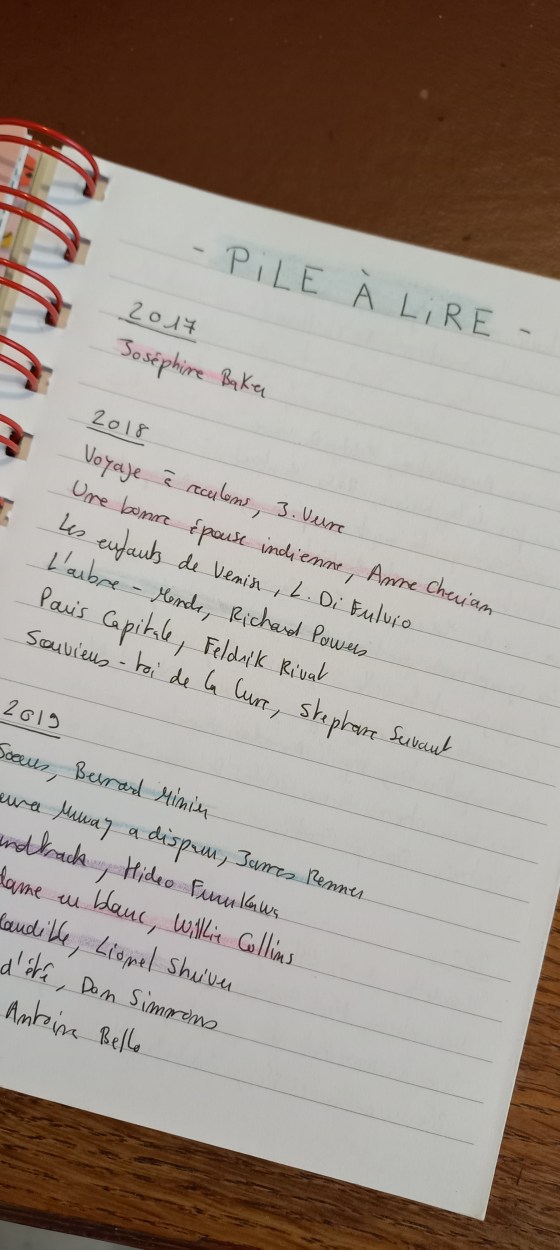 - PiLE À LiRE -
2017
Joséphine Baker
2018
Voyage à reculons, J. Verne
Une bonne épouse indienne, Anne Cherian
Les enfants de Venise, L. Di Fulvio
L'arbre-Monde, Richard Powers
Paris Capitale, Feldrik Rivat
Souviens-toi de la Lune, Stephane Servant
2019
Soeurs, Bernard Minier
aura Murray a disparu, James Renner
undtrack, Hideo Furukawa
dame en blanc, Wilkie Collins
laudible, Lionel Shriver
d'été, Dan Simmons
Antoine Bello